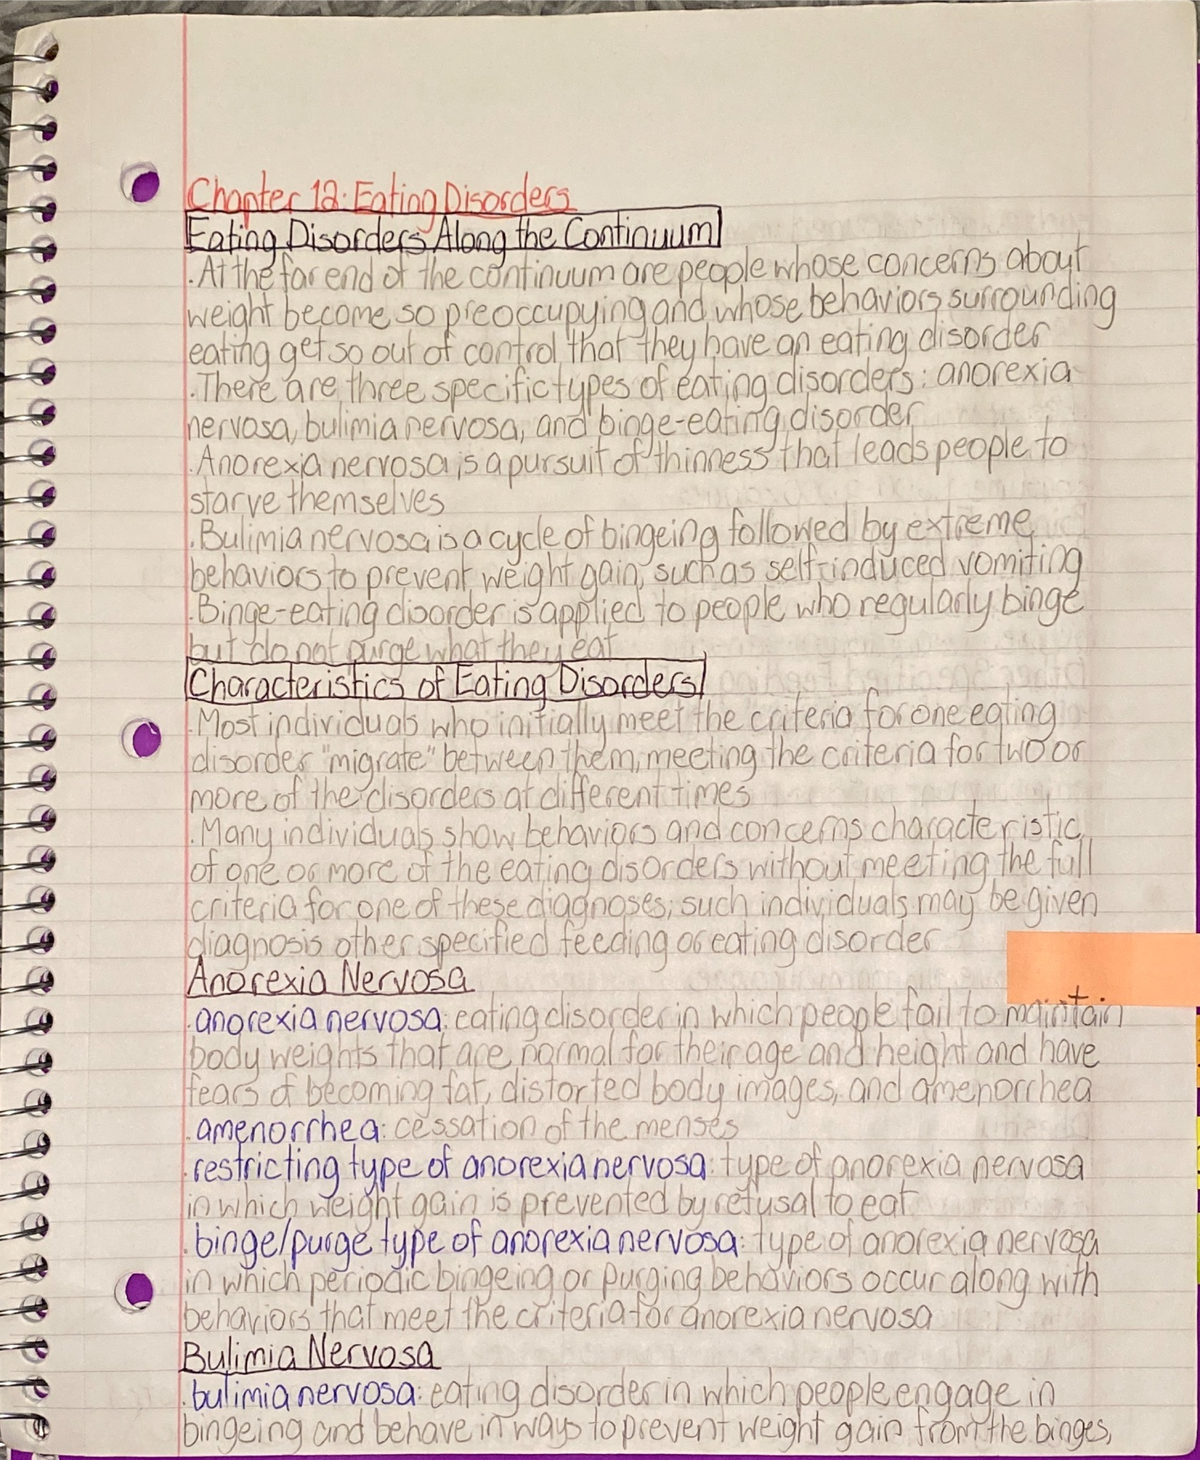 Chapter 12: Eating Disorders
Eating Disorders Along the Continuum
·At the far end of the continuum are people whose concerns about
weight become so preoccupying and whose behaviors surrounding
eating get so out of control that they have an eating disorder
·There are three specific types of eating disorders: anorexia
nervosa, bulimia nervosa, and binge-eating disorder
·Anorexia nervosa is a pursuit of thinness that leads people to
starve themselves
·Bulimia nervosa is a cycle of bingeing followed by extreme
behaviors to prevent weight gain, such as self-induced vomiting
·Binge-eating disorder is applied to people who regularly binge
but do not purge what they eat
Characteristics of Eating Disorders
·Most individuals who initially meet the criteria for one eating
disorder "migrate" between them, meeting the criteria for two or
more of the disorders at different times
·Many individuals show behaviors and concerns characteristic
of one or more of the eating disorders without meeting the full
criteria for one of these diagnoses; such individuals may be given
diagnosis other specified feeding or eating disorder
Anorexia Nervosa
·anorexia nervosa: eating disorder in which people fail to maintain
body weights that are normal for their age and height and have
fears of becoming fat, distorted body images, and amenorrhea
·amenorrhea: cessation of the menses
·restricting type of anorexia nervosa: type of anorexia nervosa
in which weight gain is prevented by refusal to eat
·binge/purge type of anorexia nervosa: type of anorexia nervosa
in which periodic bingeing or purging behaviors occur along with
behaviors that meet the criteria for anorexia nervosa
Bulimia Nervosa
·bulimia nervosa: eating disorder in which people engage in
bingeing and behave in ways to prevent weight gain from the binges,